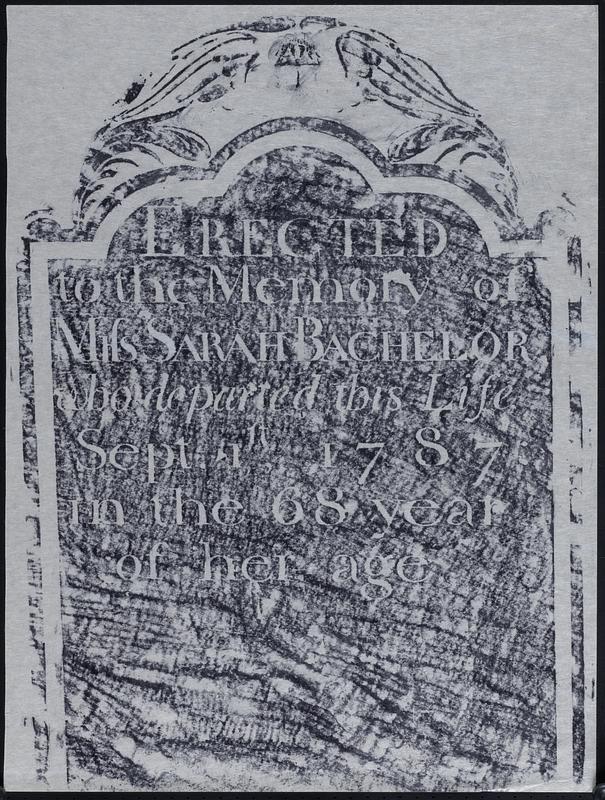 ERECTED
to the Memory of
Miſs SARAH BACHELOR
who departed this Life
Sept 1ſt 1787
in the 68 year
of her age